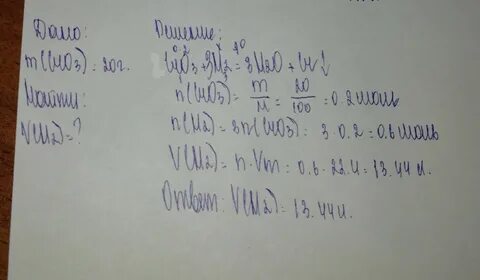 Дано:
m(CrO3) = 20г.
Найти:
V(H2) = ?
Решение:
CrO3 + 3H2 = 3H2O + Cr ↓
n(CrO3) = m/M = 20/100 = 0.2 моль
n(H2) = 3n(CrO3) = 3 · 0.2 = 0.6 моль
V(H2) = n · Vm = 0.6 · 22.4 = 13.44 л.
Ответ: V(H2) = 13.44 л.